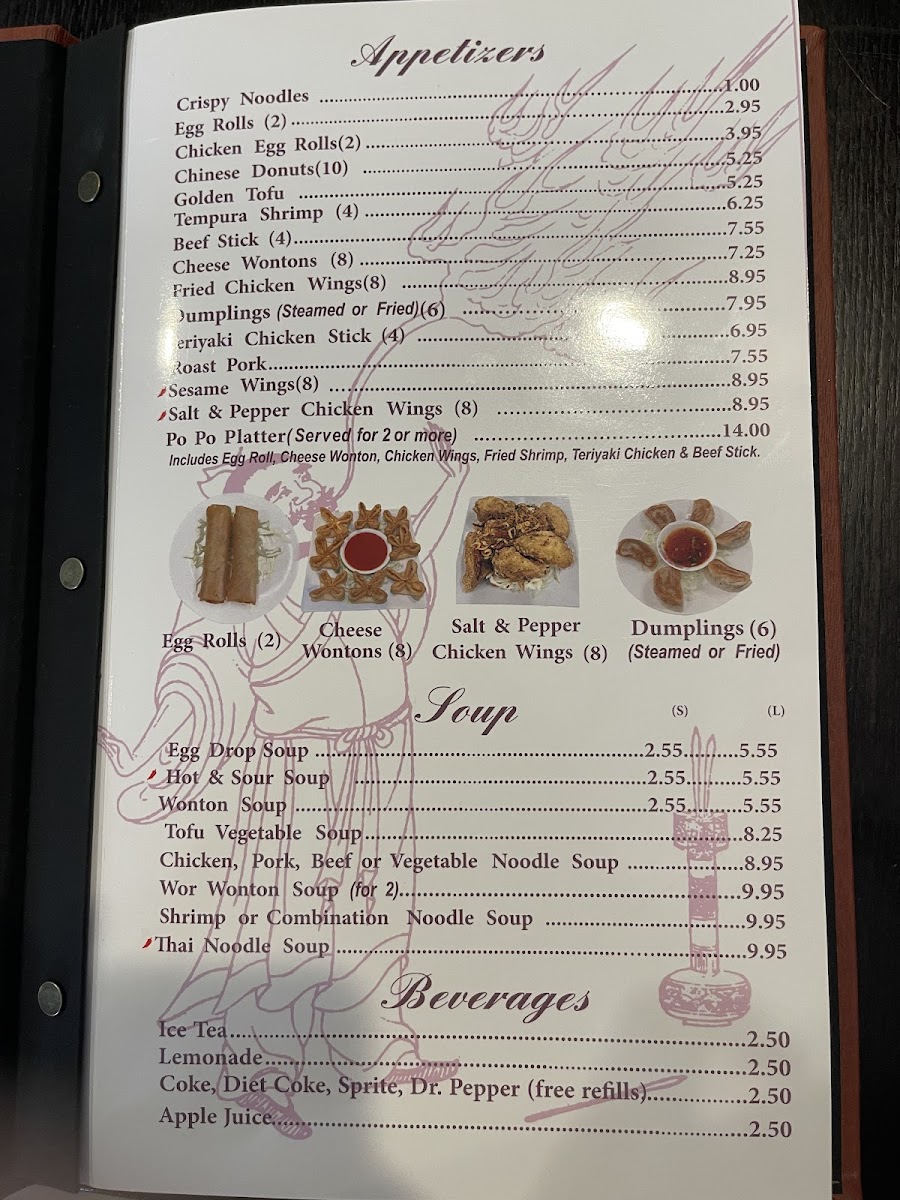 Appetizers
Crispy Noodles ........1.00
Egg Rolls (2) ........2.95
Chicken Egg Rolls(2) ........3.95
Chinese Donuts(10) ........5.25
Golden Tofu ........5.25
Tempura Shrimp (4) ........6.25
Beef Stick (4)........7.55
Cheese Wontons (8) ........7.25
Fried Chicken Wings(8) ........8.95
Dumplings (Steamed or Fried)(6) ........7.95
eriyaki Chicken Stick (4) ........6.95
Roast Pork........7.55
Sesame Wings(8) ........8.95
Salt & Pepper Chicken Wings (8) ........8.95
Po Po Platter(Served for 2 or more) ........14.00
Includes Egg Roll, Cheese Wonton, Chicken Wings, Fried Shrimp, Teriyaki Chicken & Beef Stick.
Egg Rolls (2)
Cheese
Wontons (8)
Salt & Pepper
Chicken Wings (8)
Dumplings (6)
(Steamed or Fried)
Soup (S) (L)
Egg Drop Soup ........2.55........5.55
Hot & Sour Soup ........2.55........5.55
Wonton Soup ........2.55........5.55
Tofu Vegetable Soup........8.25
Chicken, Pork, Beef or Vegetable Noodle Soup ........8.95
Wor Wonton Soup (for 2)........9.95
Shrimp or Combination Noodle Soup ........9.95
Thai Noodle Soup ........9.95
Beverages
Ice Tea........2.50
Lemonade........2.50
Coke, Diet Coke, Sprite, Dr. Pepper (free refills)........2.50
Apple Juice........2.50